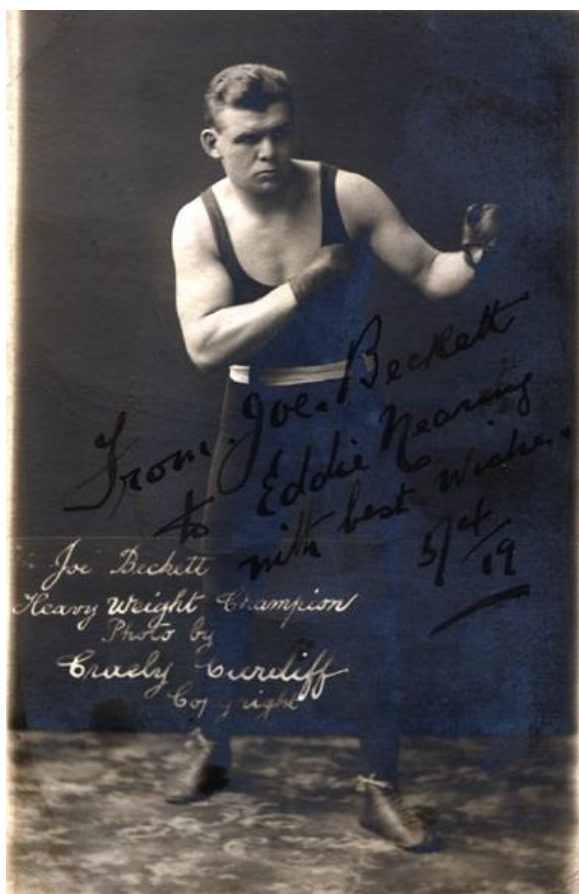 From Joe. Beckett
to Eddie Nearing
with best wishes.
5/4/19
Joe Beckett
Heavy Weight Champion
Photo by
Craely Cardiff
Copyright